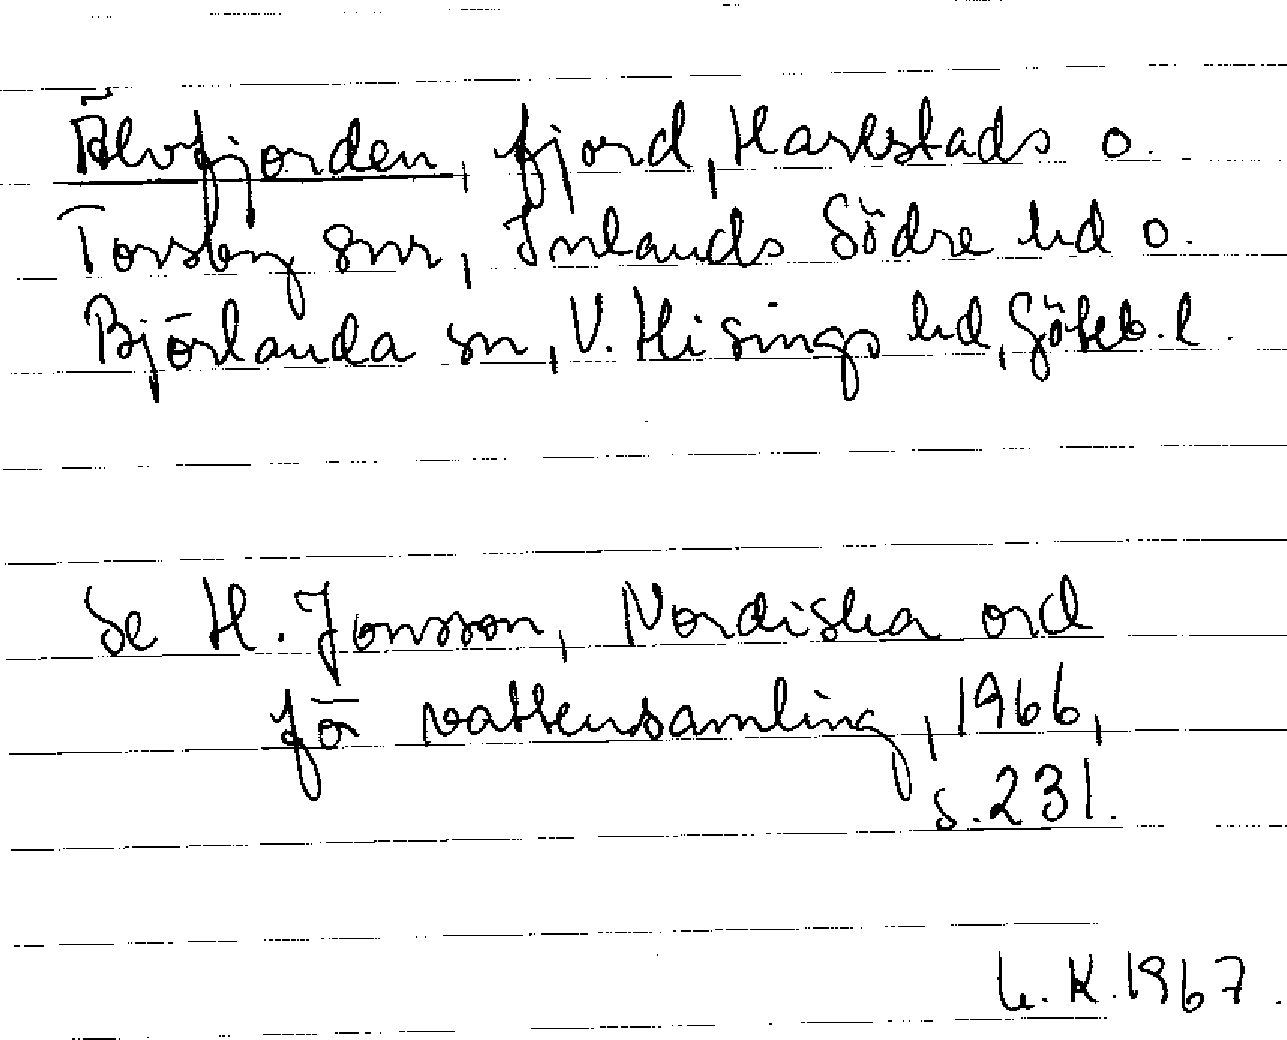 Älvfjorden, fjord, Harestads o.
Torsby snr, Inlands Södre hd o.
Björlanda sn, V. Hisings hd, Göteb. l.
Se H. Jonsson, Nordiska ord
för vattensamling, 1966,
s. 231.
K. 1967.